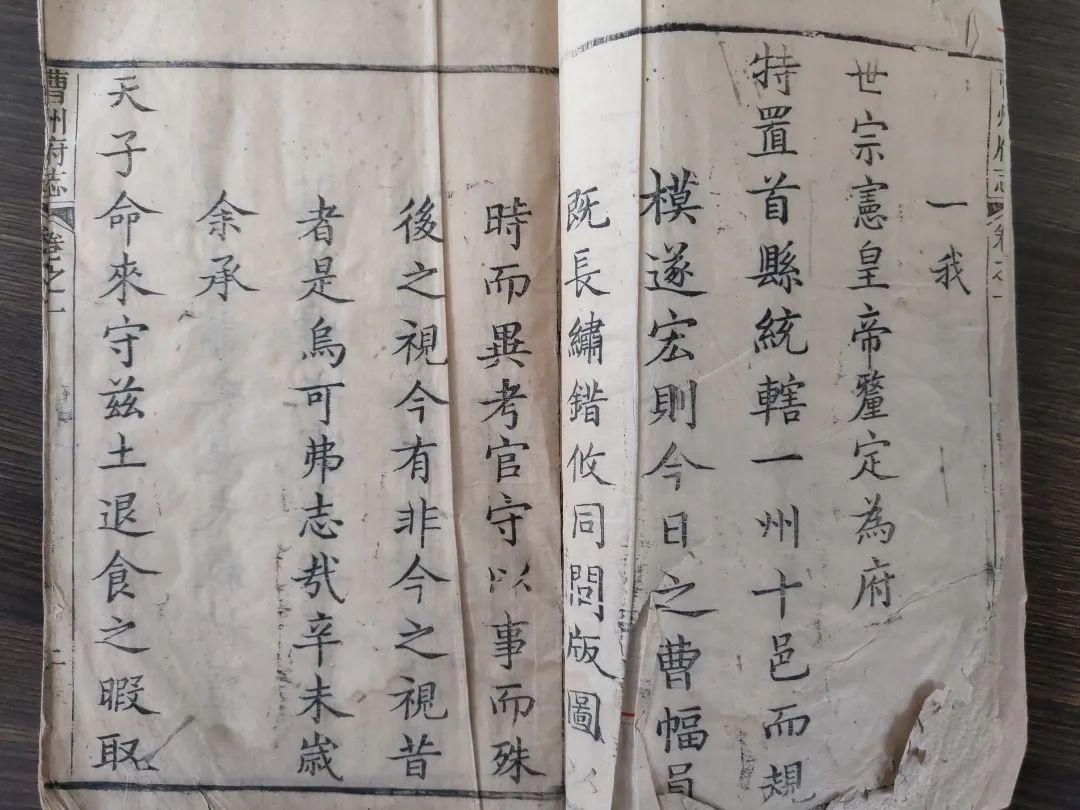 一我
世宗憲皇帝釐定為府
特置首縣統轄一州十邑而規
模遂宏則今日之曹幅員
既長繡錯攸同問版圖以
時而異考官守以事而殊
後之視今有非今之視昔
者是烏可弗志哉辛未歲
余承
天子命來守茲土退食之暇取
曹州府志
卷之一
二